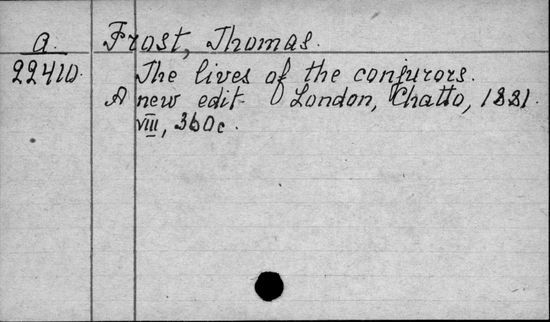 a.
22410.
Frost, Thomas.
The lives of the conjurors.
A new edit. London, Chatto, 1881.
VIII, 360c.